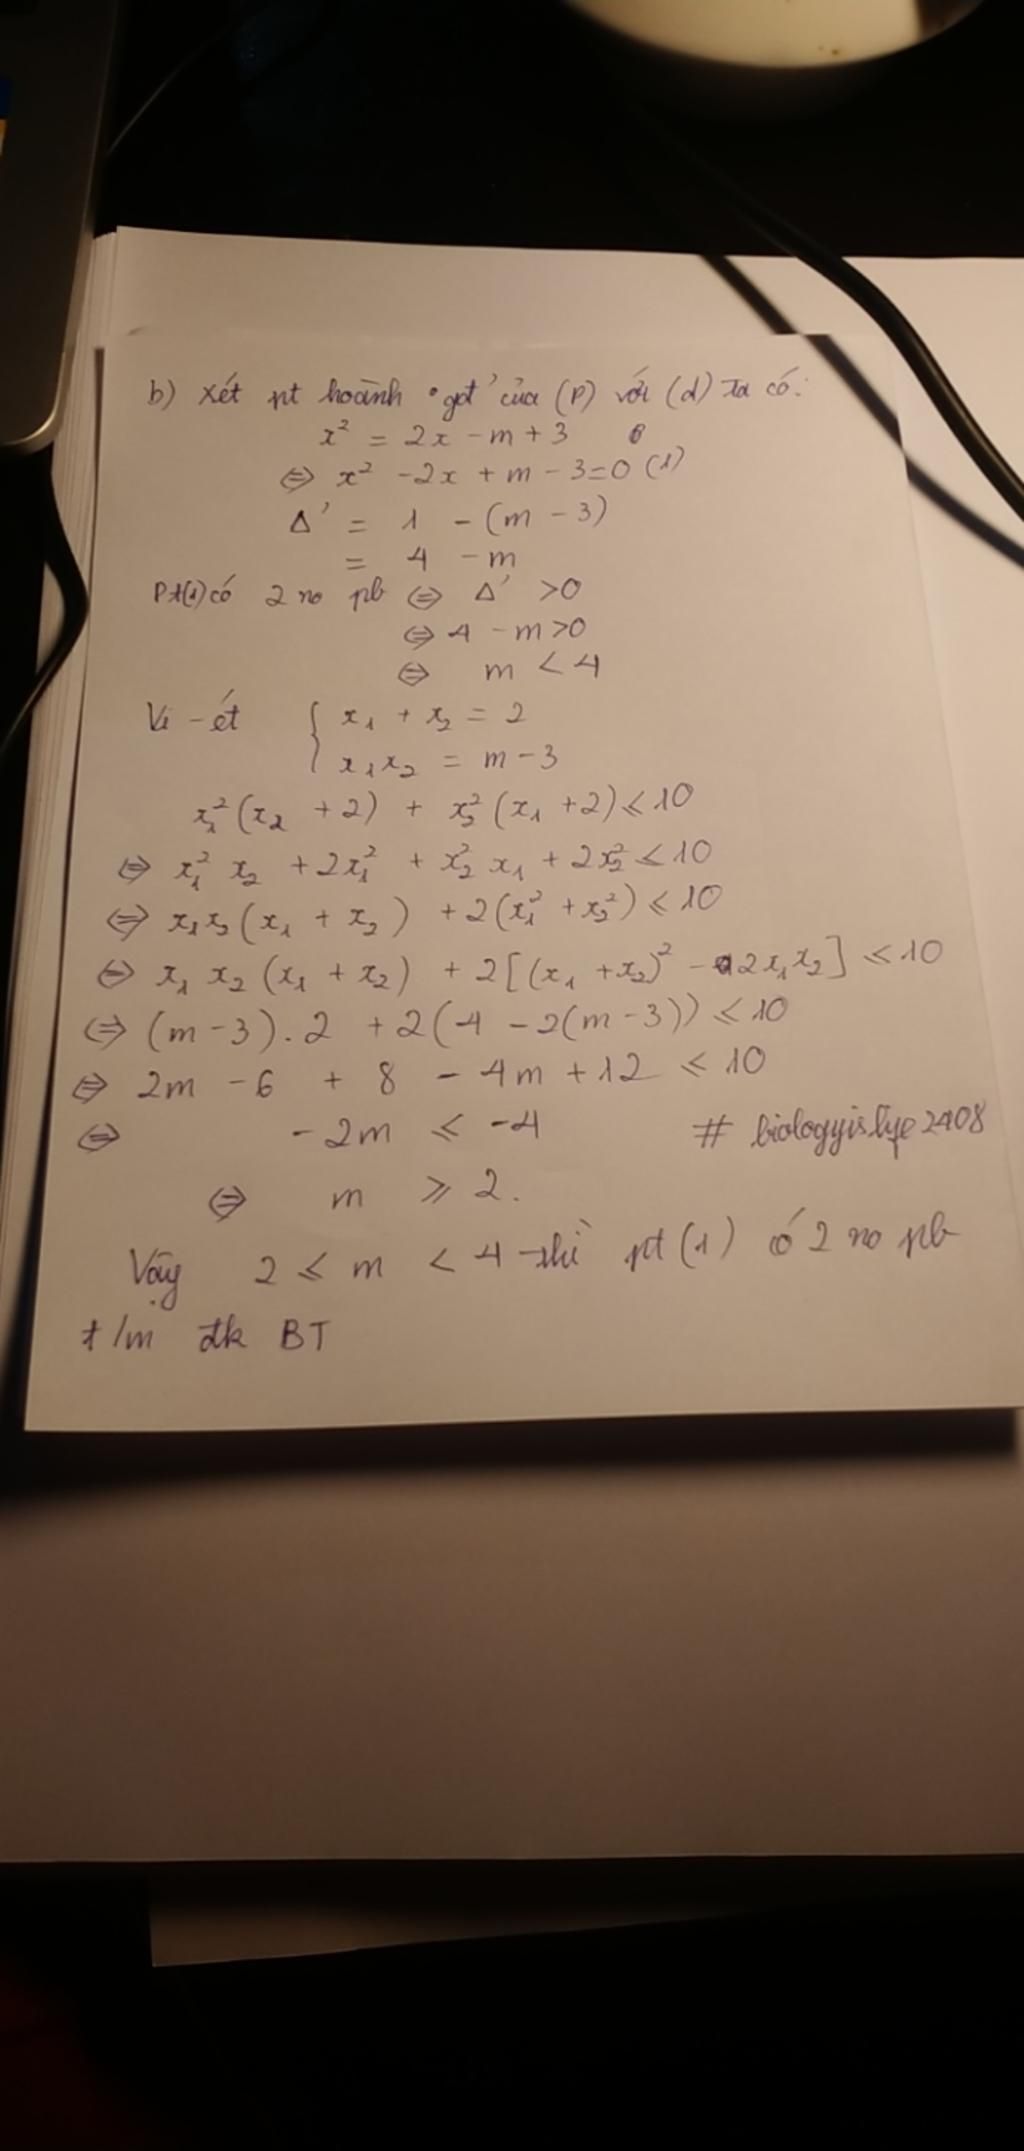 b) Xét pt hoành độ gđ của (P) với (d) ta có:
x² = 2x - m + 3
⇔ x² - 2x + m - 3 = 0 (1)
Δ' = 1 - (m - 3)
= 4 - m
Pt(1) có 2 no pb ⇔ Δ' > 0
⇔ 4 - m > 0
⇔ m < 4
Vi-ét { x₁ + x₂ = 2
x₁x₂ = m - 3
x₁²(x₂ + 2) + x₂²(x₁ + 2) ≤ 10
⇔ x₁² x₂ + 2x₁² + x₂² x₁ + 2x₂² ≤ 10
⇔ x₁x₂(x₁ + x₂) + 2(x₁² + x₂²) ≤ 10
⇔ x₁ x₂ (x₁ + x₂) + 2[(x₁ + x₂)² - 2x₁x₂] ≤ 10
⇔ (m - 3).2 + 2(4 - 2(m - 3)) ≤ 10
⇔ 2m - 6 + 8 - 4m + 12 ≤ 10
⇔ -2m ≤ -4 # biologyislife2408
⇔ m ≥ 2.
Vậy 2 ≤ m < 4 thì pt (1) có 2 no pb
t/m đk BT